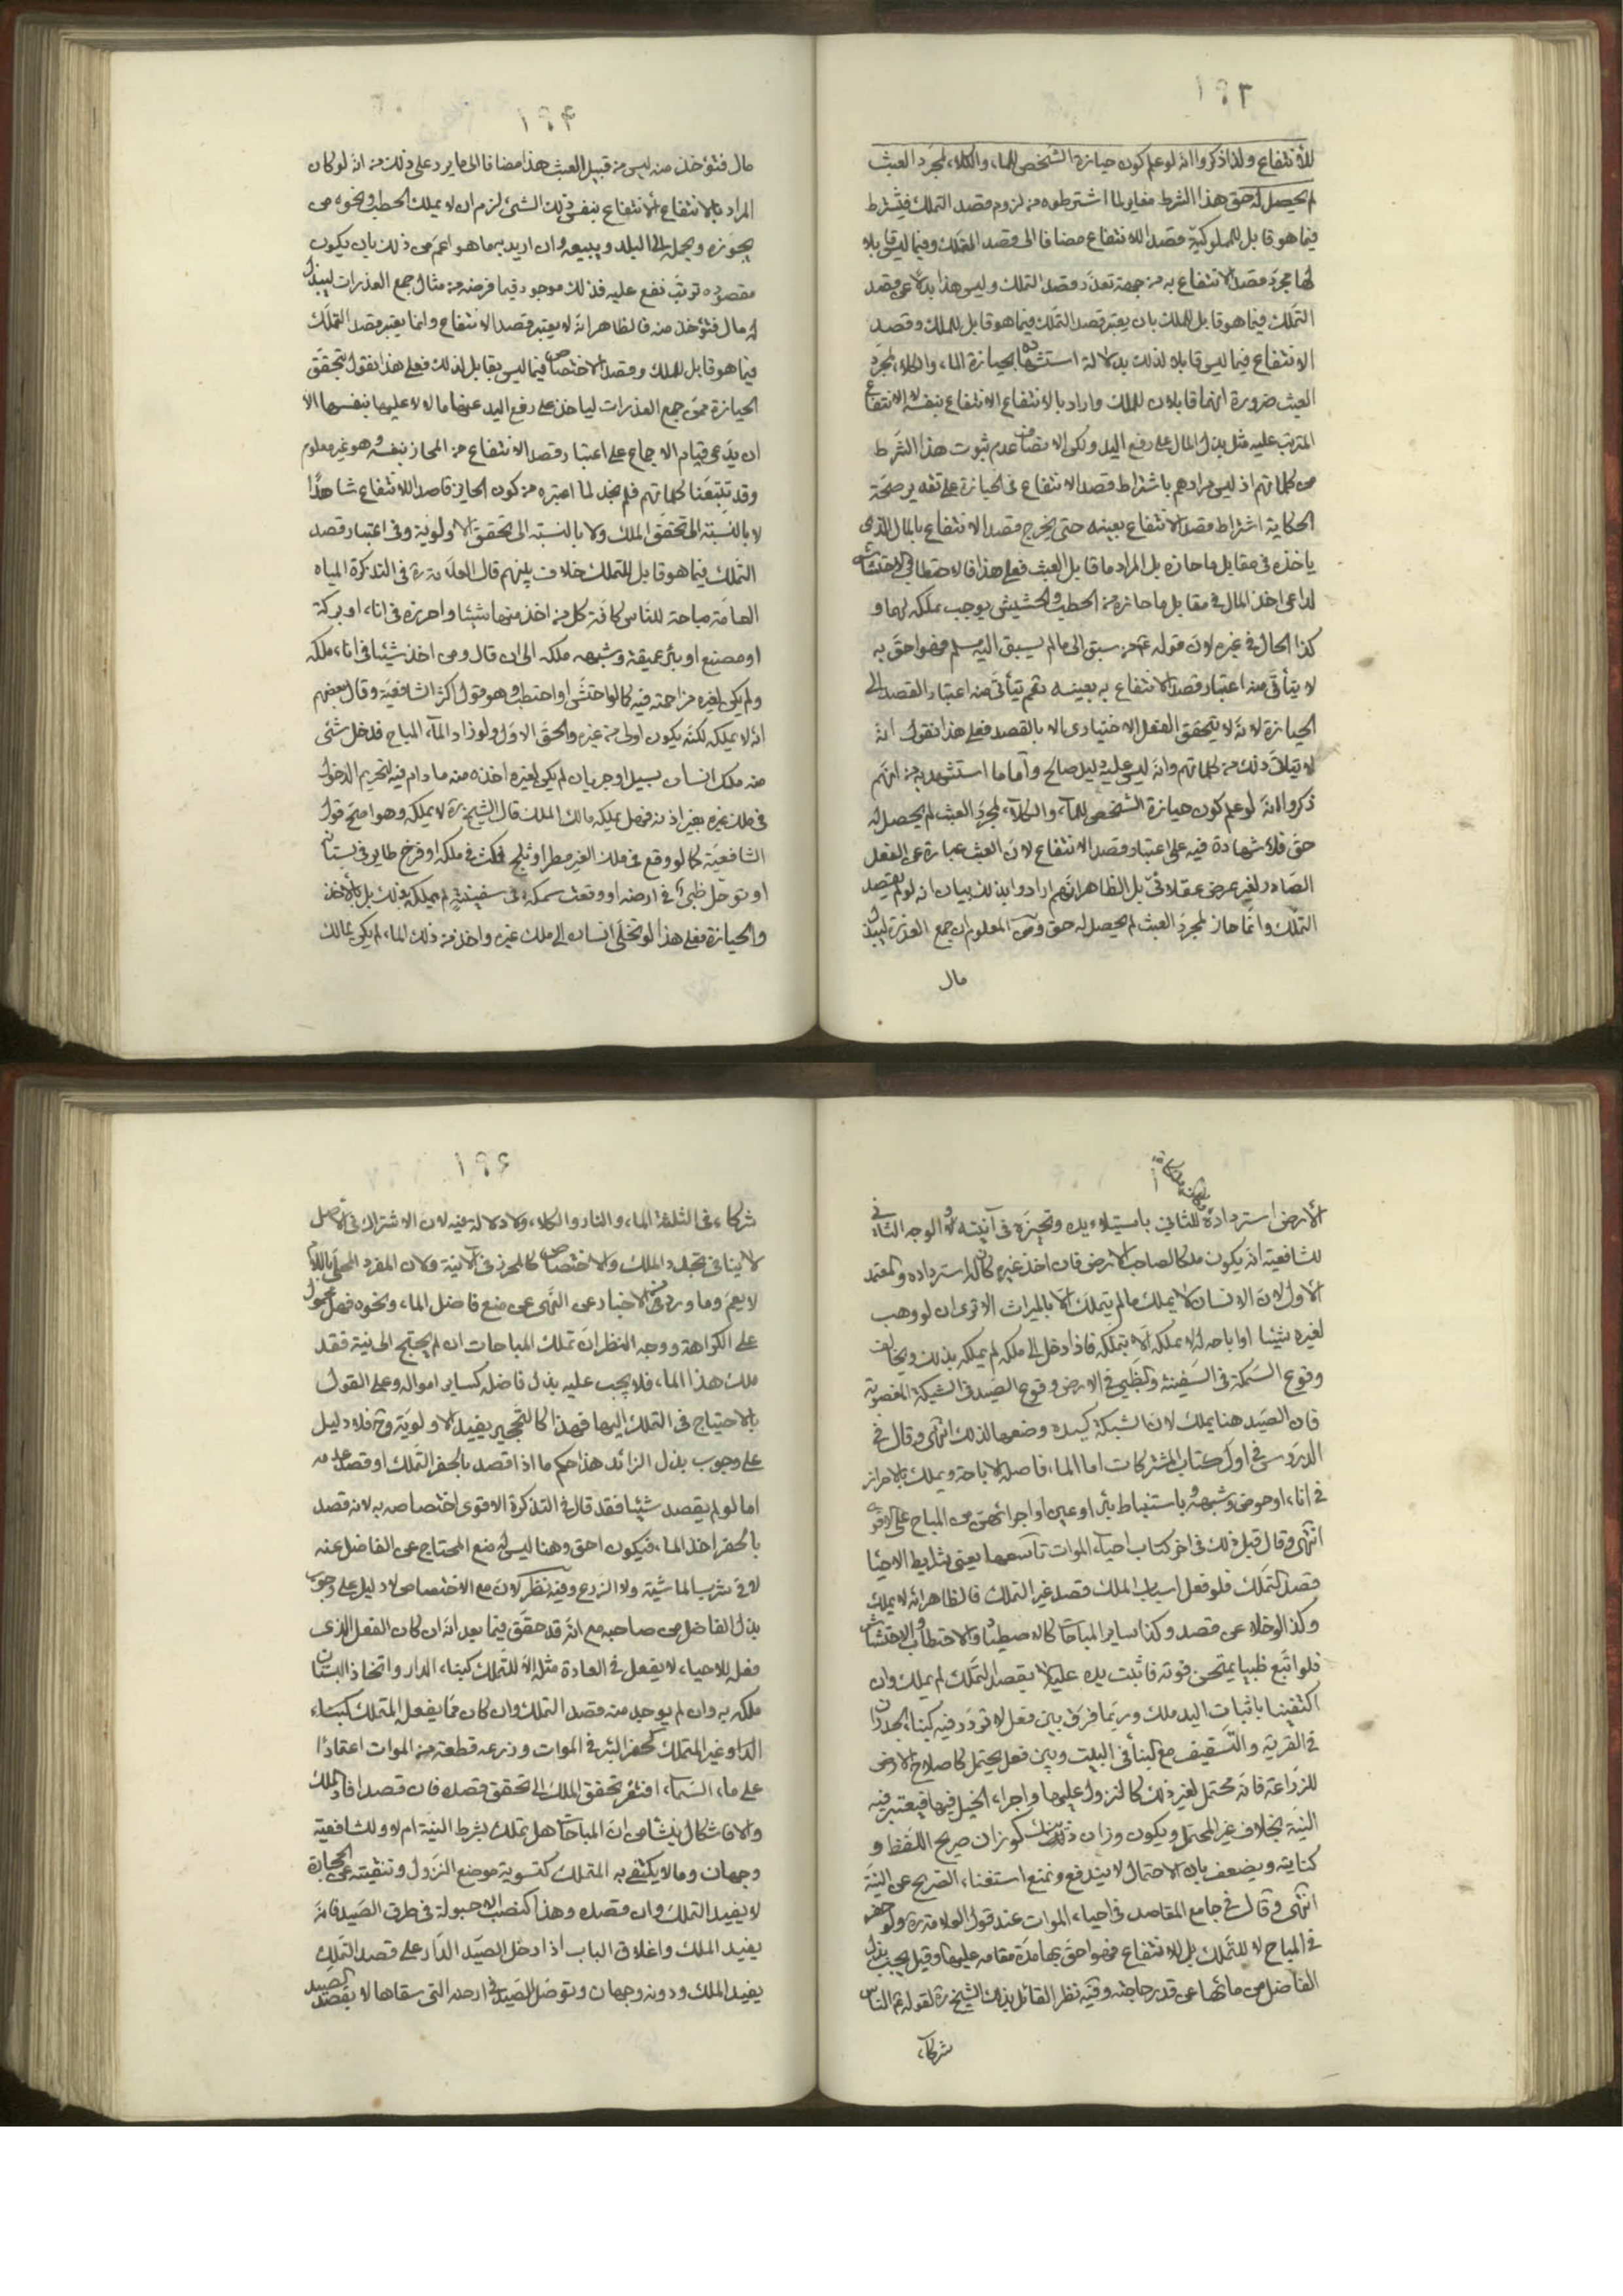 ١٩٣
للأنتفاع ولذا ذكروا انه لو علم كون حيازة الشخص للماء والكلاء لمجرد العبث
لم يحصل له حق هذا الشرط مغاير لما اشترطوه من لزوم قصد التملك فيشترط
فيما هو قابل للمملوكية قصد الانتفاع مضافا الى قصد التملك وفيما ليس قابلا
لها مجرد قصد الانتفاع به من جهة تعذر قصد التملك وليس هذا بدلا عن قصد
التملك فيما هو قابل للملك بان يعتبر قصد التملك فيما هو قابل للملك وقصد
الانتفاع فيما ليس قابلا لذلك بدلالة استشهاده بحيازة الماء والكلاء لمجرد
العبث ضرورة انهما قابلان للملك واراد بالانتفاع الانتفاع بنفسه لا الانتفاع
المترتب عليه مثل بذل المال على رفع اليد ولكن الانصاف عدم ثبوت هذا الشرط
من كلماتهم اذ ليس مرادهم باشتراط قصد الانتفاع في الحيازة على تقدير صحة
الحكاية اشتراط قصد الانتفاع بعينه حتى يخرج قصد الانتفاع بالمال الذى
ياخذه في مقابل ما حازه بل المراد ما قابل العبث فعلى هذا فالاحتطاب والاحتشاش
لداعى اخذ المال في مقابل ما حازه من الحطب والحشيش يوجب تملكه لهما و
كذا الحال في غيره لان قوله ع من سبق الى ما لم يسبق اليه مسلم فهو احق به
لا يتأتى منه اعتبار قصد الانتفاع به بعينه نعم يتأتى منه اعتبار القصد الى
الحيازة لانه لا يتحقق الفعل الاختيارى الا بالقصد فعلى هذا نقول انه
ذلك من كلماتهم وانه ليس عليه دليل صالح واما ما استشهد به من انهم
ذكروا انه لو علم كون حيازة الشخص للماء والكلاء لمجرد العبث لم يحصل له
حق فلا شهادة فيه على اعتبار قصد الانتفاع لان العبث عبارة عن الفعل
الصادر لغير غرض عقلائى بل الظاهر انهم ارادوا بذلك بيان انه لو لم يقصد
التملك وانما حاز لمجرد العبث لم يحصل له حق ومن المعلوم ان جمع العذرة ليبذل
مال
١٩٤
مال فتؤخذ منه ليس من قبيل العبث هذا مضافا الى ما يرد على ذلك من انه لو كان
المراد بالانتفاع الانتفاع بنفس ذلك الشئ لزم ان لا يملك الحطب ونحوه من
يحوزه ويحمله الى البلد ويبيعه وان اريد بهما هو اعم من ذلك بان يكون
مقصوده ترتب نفع عليه فذلك موجود فيما فرضه من مثال جمع العذرات ليبذل
له مال فتؤخذ منه فالظاهر انه لا يعتبر قصد الانتفاع وانما يعتبر قصد التملك
فيما هو قابل للملك وقصد الاختصاص فيما ليس بقابل لذلك فعلى هذا نقول بتحقق
الحيازة ممن جمع العذرات لياخذ على رفع اليد عنها مالا لا عليها بنفسها الا
ان يدعى قيام الاجماع على اعتبار قصد الانتفاع من المحاز بنفسه وهو غير معلوم
وقد تتبعنا كلماتهم فلم نجد لما اعتبره من كون الحايز قاصدا للانتفاع شاهدا
لا بالنسبة الى تحقق الملك ولا بالنسبة الى تحقق الاولوية وفي اعتبار قصد
التملك فيما هو قابل للتملك خلاف بينهم قال العلامة ره في التذكرة المياه
العامة مباحة للناس كافة كل من اخذ منها شيئا واحرزه في اناء او بركة
او مصنع او بئر عميقة وشبهه ملكه الى ان قال ومن اخذ شيئا في اناء ملكه
ولم يكن لغيره مزاحمته فيه كما لو احتش او احتطب وهو قول اكثر الشافعية وقال بعضهم
انه لا يملكه لكنه يكون اولى من غيره والحق الاول ولو زاد الماء المباح فدخل شئ
منه ملك انسان بسيل او جريان لم يكن لغيره اخذه منه ما دام فيه لتحريم الدخول
في ملك غيره بغير اذنه فهل يملكه مالك الملك قال الشيخ ره لا يملكه وهو اصح قولى
الشافعية كما لو وقع في ملك الغير مطر او ثلج فمكث في ملكه او فرخ طاير في بستانه
او توحل ظبى في ارضه او وقعت سمكة في سفينته لم يملكه بذلك بل بالاخذ
والحيازة فعلى هذا لو تخطى انسان الى ملك غيره واخذ من ذلك الماء لم يكن لمالك
الأرض استرداده للثاني باستيلاء يده وتحيزه في آنيته والوجه الثاني
للشافعية انه يكون ملكا لصاحب الارض فان اخذه غيره كان له استرداده والمعتمد
الاول لان الانسان لا يملك ما لم يتملك الا بالميراث الا ترى ان لو وهب
لغيره شيئا او اباحه له لا يملكه الا بتملكه فاذا دخل الى ملكه لم يملكه بذلك ويخالف
وقوع السمكة في السفينة والظبى في الارض وقوع الصيد في الشبكة المغصوبة
فان الصيد هنا يملك لان الشبكة كيده وضعها لذلك انتهى وقال في
الدروس في اول كتاب المشتركات اما الماء فاصله الاباحة ويملك بالاحراز
في اناء او حوض وشبهه وباستنباط بئر او عين او اجرائهن من المباح على الاقوى
انتهى وقال قبل ذلك في اخر كتاب احياء الموات تاسعها يعنى شرايط الاحياء
قصد التملك فلو فعل اسباب الملك قصد غير التملك فالظاهر انه لا يملك
وكذا لو خلا عن قصد وكذا ساير المباحات كالاصطياد والاحتطاب والاحتشاش
فلو اتبع ظبيا يمتحن قوته فاثبت يده عليه لا بقصد التملك لم يملك وان
اكتفينا باثبات اليد ملك وربما فرق بين فعل لا تردد فيه كبناء الجدران
في القرية والتسقيف مع البناء في البيت وبين فعل محتمل كاصلاح الارض
للزراعة فانه محتمل لغير ذلك كالنزول عليها واجراء الخيل فيها فيعتبر فيه
النية بخلاف غير المحتمل ويكون وزان ذلك كوزان صريح اللفظ و
كنايته ويضعف بان الاحتمال لا يندفع ونمنع استغناء الصريح عن النية
انتهى وقال في جامع المقاصد في احياء الموات عند قول العلامة ره ولو حفر
في المباح لا للتملك بل للانتفاع فهو احق بها مدة مقامه عليها وقيل يجب بذل
الفاضل من مائها عن قدر حاجته وفيه نظر القائل بذلك الشيخ ره لقوله ع الناس
شركاء
١٩٦
شركاء في الثلثة الماء والنار والكلاء ولا دلالة فيه لان الاشتراك في الاصل
لا ينافى تجدد الملك والاختصاص كالمحرز في الانية ولان المفرد المحلى باللام
لا يعم وما ورد في الاخبار عن النهى عن منع فاضل الماء ونحوه فهل محمول
على الكراهة ووجه النظر ان تملك المباحات ان لم يحتج الى نية فقد
ملك هذا الماء فلا يجب عليه بذل فاضله كساير امواله وعلى القول
بالاحتياج في التملك اليها فهذا كالتحجير يفيد الاولوية وح فلا دليل
على وجوب بذل الزائد هذا حكم ما اذا قصد بالحفر التملك او قصد عدمه
اما لو لم يقصد شيئا فقد قال في التذكرة الاقوى اختصاصه به لانه قصد
بالحفر اخذ الماء فيكون احق وهنا ليس له منع المحتاج عن الفاضل عنه
لا في شرب الماشية ولا الزرع وفيه نظر لان مع الاختصاص لا دليل على وجوب
بذل الفاضل من صاحبه مع انه قد حقق فيما بعد انه ان كان الفعل الذى
فعله للاحياء لا يفعل في العادة مثله الا للتملك كبناء الدار واتخاذ البستان
ملكه به وان لم يوجد منه قصد التملك وان كان مما يفعله المتملك كبناء
الدار وغير المتملك كحفر البئر في الموات وزرع قطعة من الموات اعتمادا
على ماء السماء افتقر تحقق الملك الى تحقق قصده فان قصد افاد الملك
والا فاشكال ينشأ من ان المباحات هل تملك بشرط النية ام لا وللشافعية
وجهان وما لا يكتفى به المتملك كتسوية موضع النزول وتنقيته عن الحجارة
لا يفيد التملك وان قصده وهذا كنصب الاحبولة في طرق الصيد فانه
يفيد الملك واغلاق الباب اذا دخل الصيد الدار على قصد التملك
يفيد الملك ودونه وجهان وتوحل الصيد في ارضه التي سقاها لا بقصد الصيد